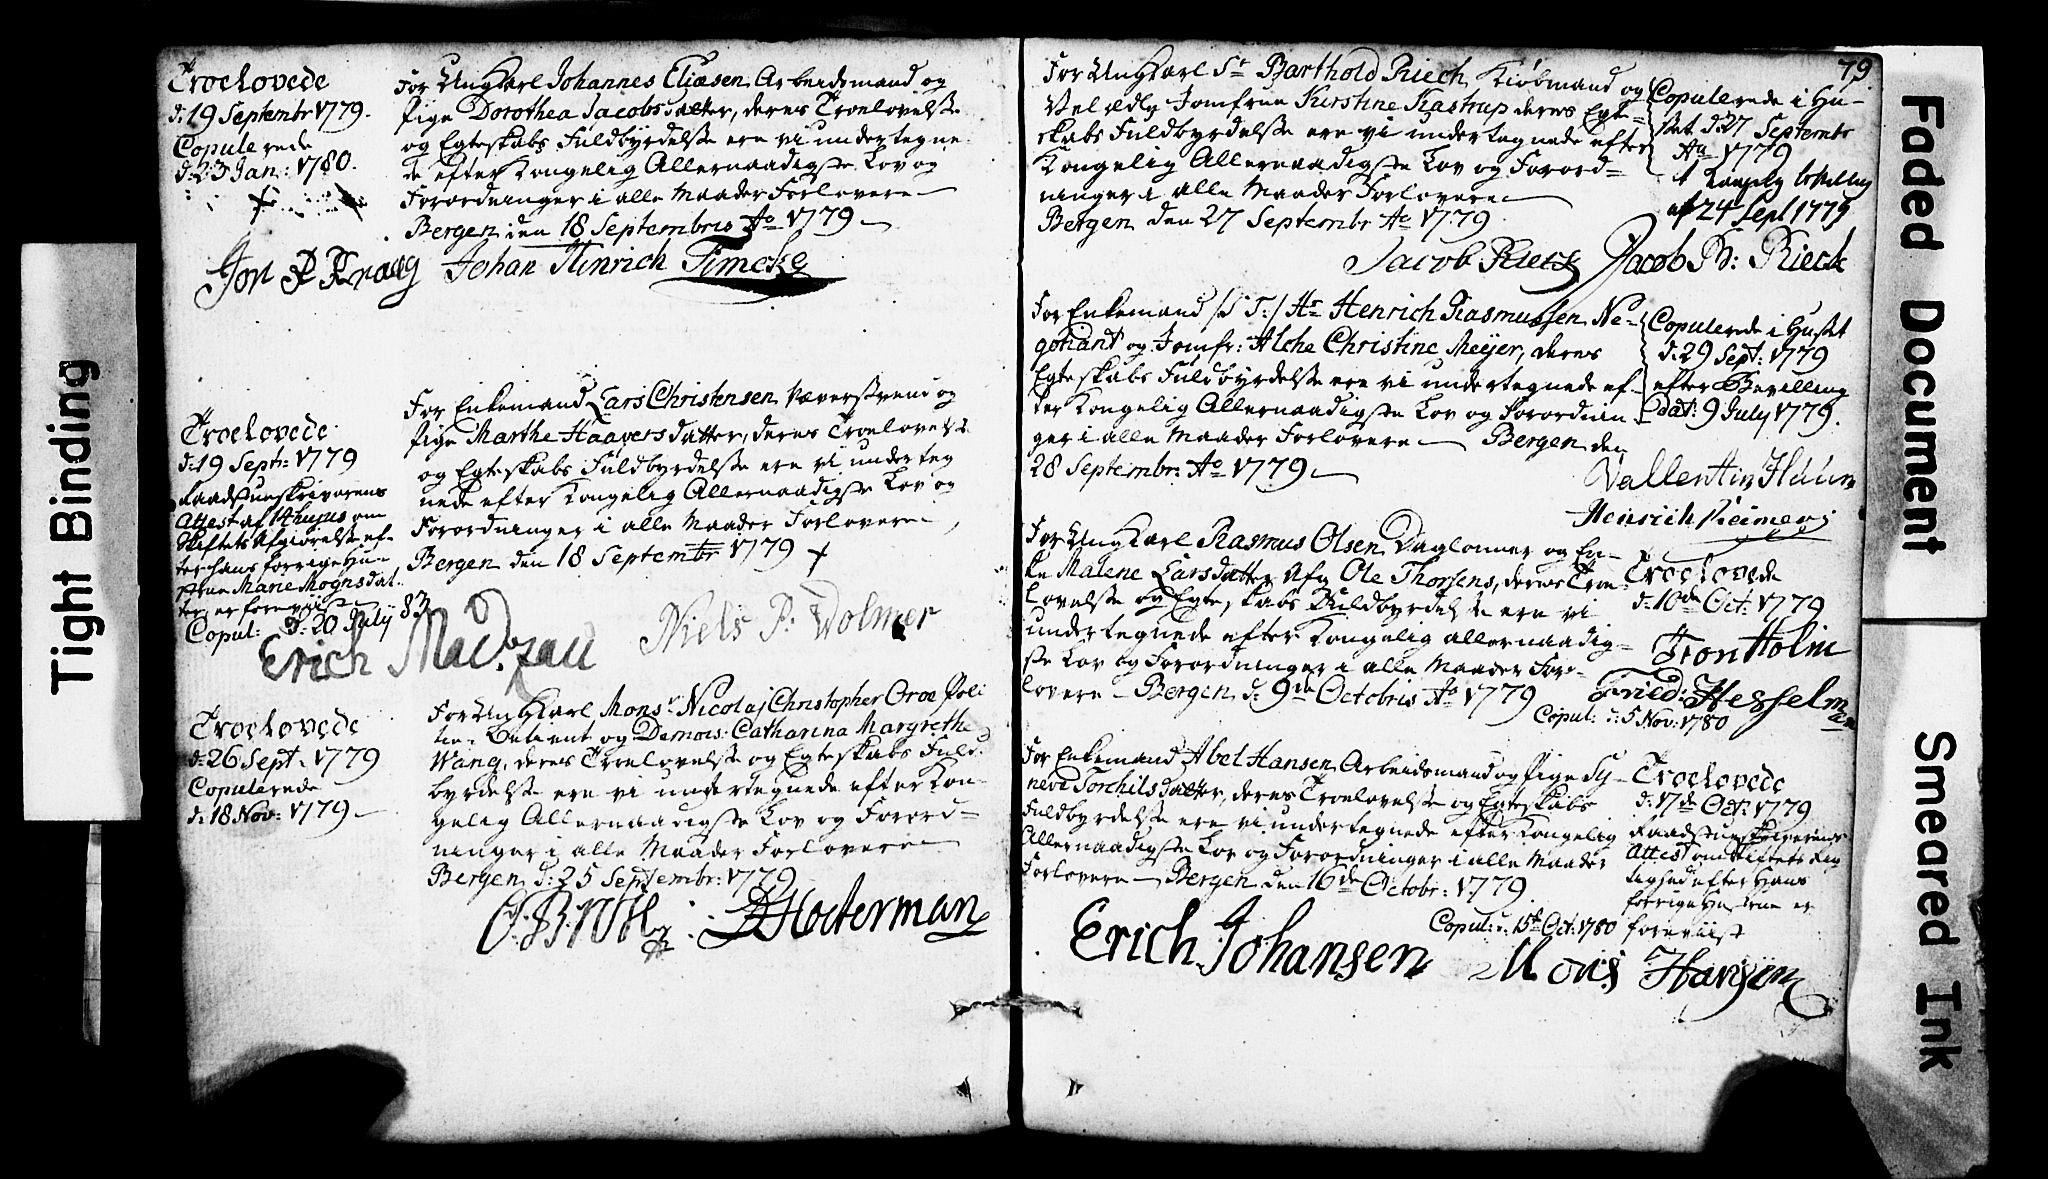 Tight Binding
Troelovede
d: 19 Septembr 1779.
Copulerede
d: 23 Jan: 1780.
For Ung Karl Johannes Eliasen Arbeidsmand og
Pige Dorothea Jacobsdatter, deres Troelovelse
og Egteskabs Fuldbyrdelse ere vi undertegne-
de efter Kongelig Allernaadigste Lov og
Forordninger i alle Maader Forlovere
Bergen den 18 Septembris Ao 1779
Johan Hinrich Timcke
Troelovede
d: 19 Septr: 1779
Raadstueskriverens
Attest af 14 hujus om
Skiftets Afgiørelse ef-
ter hans forrige Hu-
strue Marie Mognsdat-
ter er foreviist
Copul: d: 20 July 83
For Enkemand Lars Christensen Væversvend og
Pige Marthe Haagensdatter, deres Troelovelse
og Egteskabs Fuldbyrdelse ere vi underteg
nede efter Kongelig Allernaadigste Lov og
Forordninger i alle Maader Forlovere
Bergen den 18 Septembr 1779
Erich Niels P: Wolmer
Troelovede
d: 26 Sept: 1779
Copulerede
d: 18 Nov: 1779
For Ung Karl Monsr Nicolaj Christopher Oroe Poli
tie-Betient og Demois: Catharina Margrethe
Wang, deres Troelovelse og Egteskabs Fuld-
byrdelse ere vi undertegnede efter Kon-
gelig Allernaadigste Lov og Forord=
ninger i alle Maader Forlovere
Bergen d: 25 Septembr: 1779
Hoterman
79
For Ung Karl Sr Barthold Riech Kiøbmand og
Vel Edle Jomfrue Kirstine Kastrup deres Egte=
skabs Fuldbyrdelse ere vi undertegnede efter
Kongelig Allernaadigste Lov og Forord=
ninger i alle Maader Forlovere
Bergen den 27 Septembr Ao 1779
Copulerede i Hu-
set d: 27 Septembr
Ao 1779
af 24 Sept 1779
Jacob Jacob Rieck
For Enkemand /S T:/ Hr Henrich Rasmussen Ne-
gotiant og Jomfr: Alche Christine Meyer, deres
Egteskabs Fuldbyrdelse ere vi undertegnede ef-
ter Kongelig Allernaadigste Lov og Forordnin
ger i alle Maader Forlovere Bergen den
28 Septembr: Ao 1779
Copulerede i Huset
d: 29 Sept: 1779
efter Bevilling
dat: 9 July 1779.
Vallentin
Henrich Reimers
For Ung Karl Rasmus Olsen Daglonner og En-
ke Malene Larsdatter Afg Ole Thorsens, deres Troe
lovelse og Egteskabs Fuldbyrdelse ere vi
undertegnede efter Kongelig allernaadig-
ste Lov og Forordninger i alle Maader For-
lovere Bergen d: 9de Octobris Ao 1779
Troelovede
d: 10de Oct: 1779
Tron Holm
Fried: Hesselman
Copul: d: 5 Nov: 1780
For Enkemand Abel Hansen Arbeidsmand og Pige Sy-
neve Torchilsdatter, deres Troelovelse og Egteskabs
Fuldbyrdelse ere vi undertegnede efter Kongelig
Allernaadigste Lov og Forordninger i alle Maader
Forlovere Bergen den 16de Octobr: 1779.
Troelovede
d: 17de Oct: 1779
Raadstueskriverens
Attest om Skiftets Rig
tighed efter Hans
forrige Hustrue er
foreviist
Copul: d: 15t Oct: 1780
Erich Johansen Mons Hansen
Faded Document
Smeared Ink